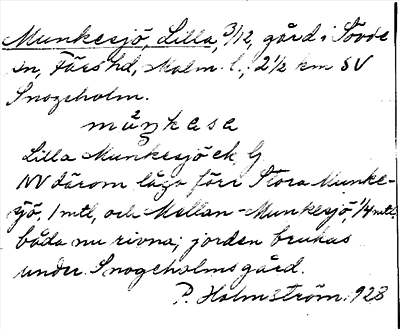 Munkesjö, Lilla, 3/12, gård i Sövde
sn, Färs hd, Malm. l., 2 1/2 km SV
Snogeholm.
müŋkasa
Lilla Munkesjö ek G
NV därom låga förr Stora Munke-
sjö, 1 mtl, och Mellan-Munkesjö, 1/4 mtl.
båda nu rivna; jorden brukas
under Snogeholms gård.
P. Holmström. 1928